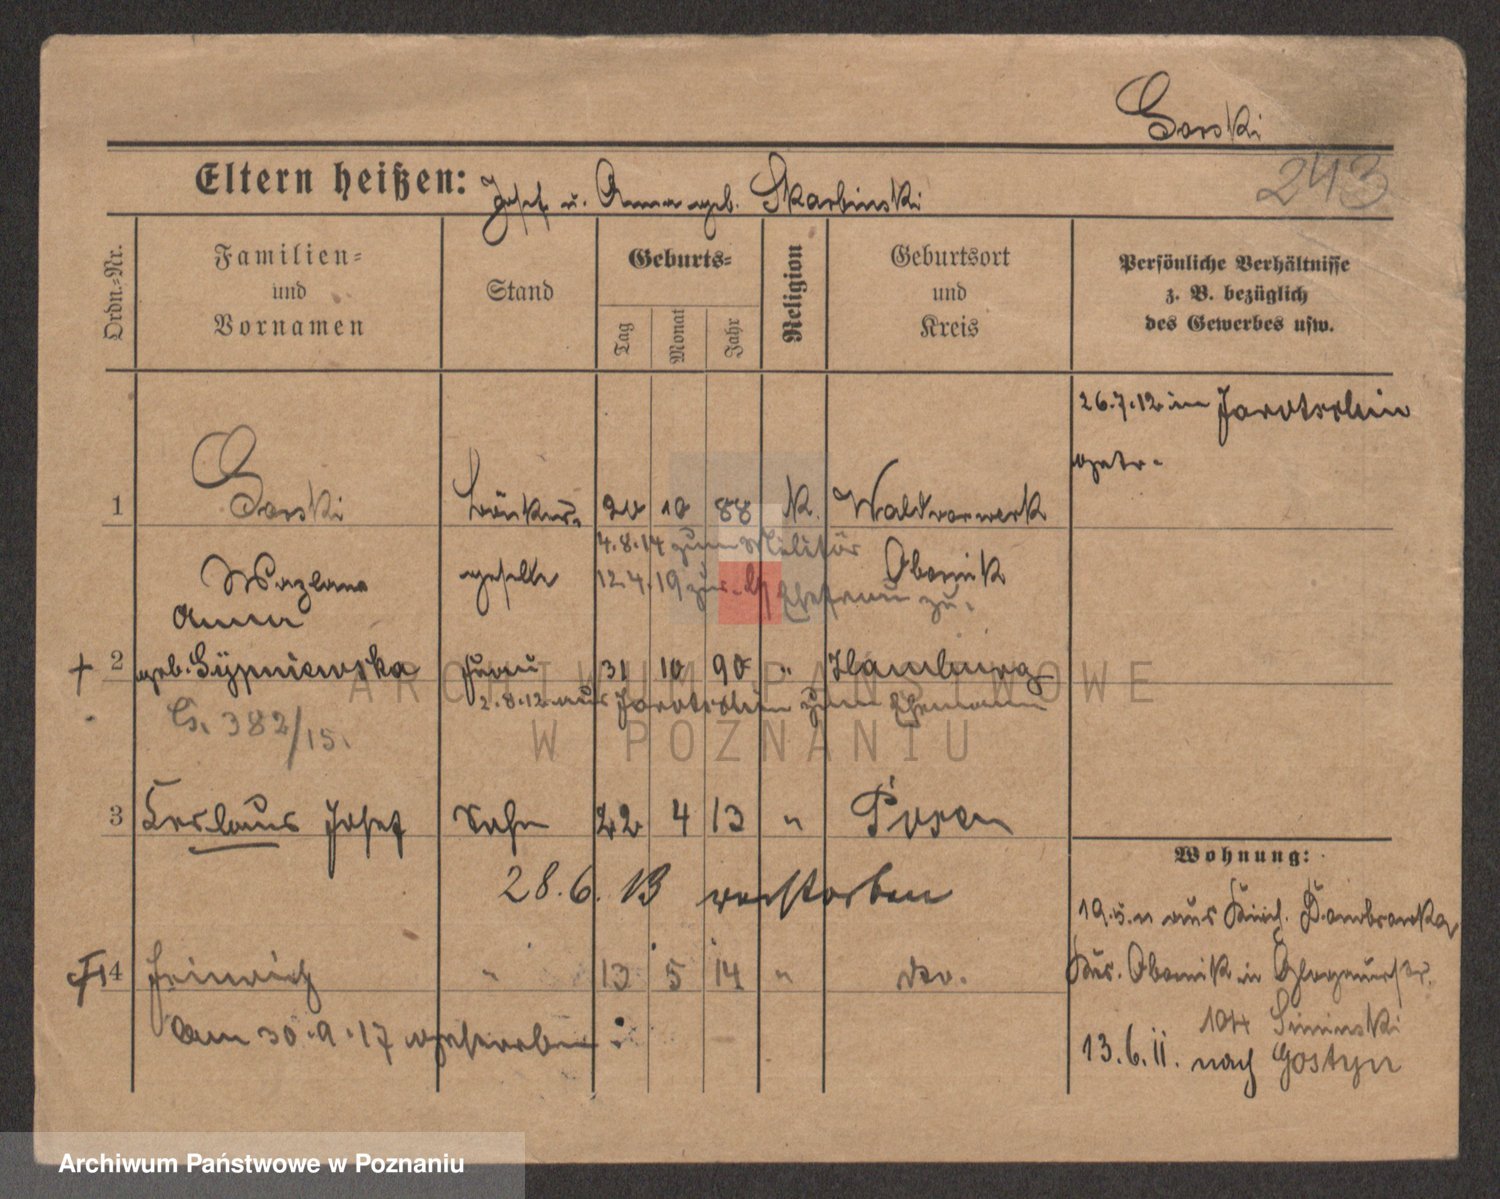 Gorski
243
Eltern heißen: Josef u. Anna geb. Skarbinski
Ordn.-Nr.
Familien-
und
Vornamen
Stand
Geburts-
Tag
Monat
Jahr
Religion
Geburtsort
und
Kreis
Persönliche Verhältnisse
z. B. bezüglich
des Gewerbes usw.
26.7.12 in Jarotschin
getr.
1 Gorski 20 10 88 k. Waldvorwerk
4.8.14 zum Militär
Wazlaw geselle Obornik
12.4.19 zur Ehefrau zu.
Anna
2 geb. Gypniewska Frau 31 10 90 " Hamburg
2.8.12 aus Jarotschin zum Ehemann
G. 382/15.
3 Josef Sohn 22 4 13 " Posen
28.6.13 verstorben
4 Heinrich " 13 5 14 " do.
Am 30.9.17 gestorben
Wohnung:
19.5.11 aus Dombrowka
Krs. Obornik in Glogauerstr.
104 Siminski
13.6.11. nach Gostyn
ARCHIWUM PAŃSTWOWE
W POZNANIU
Archiwum Państwowe w Poznaniu